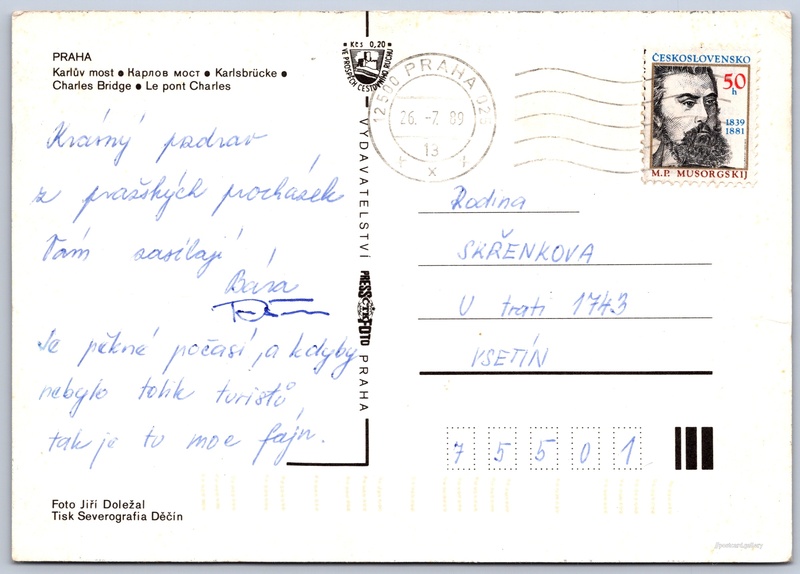 PRAHA
Karlův most ● Карлов мост ● Karlsbrücke ●
Charles Bridge ● Le pont Charles
Krásný pozdrav
z pražských procházek
Vám zasílají
Bára
Je pěkné počasí, a kdyby
nebylo tolik turistů,
tak je tu moc fajn.
Foto Jiří Doležal
Tisk Severografia Děčín
Kčs 0,20
VE PROSPĚCH CESTOVNÍHO RUCHU
VYDAVATELSTVÍ PRESSFOTO PRAHA
ČTK
12500 PRAHA 025
26. -7. 89
13
x
ČESKOSLOVENSKO
50 h
1839
1881
M.P. MUSORGSKIJ
Rodina
SKŘENKOVA
U trati 1743
VSETÍN
75501